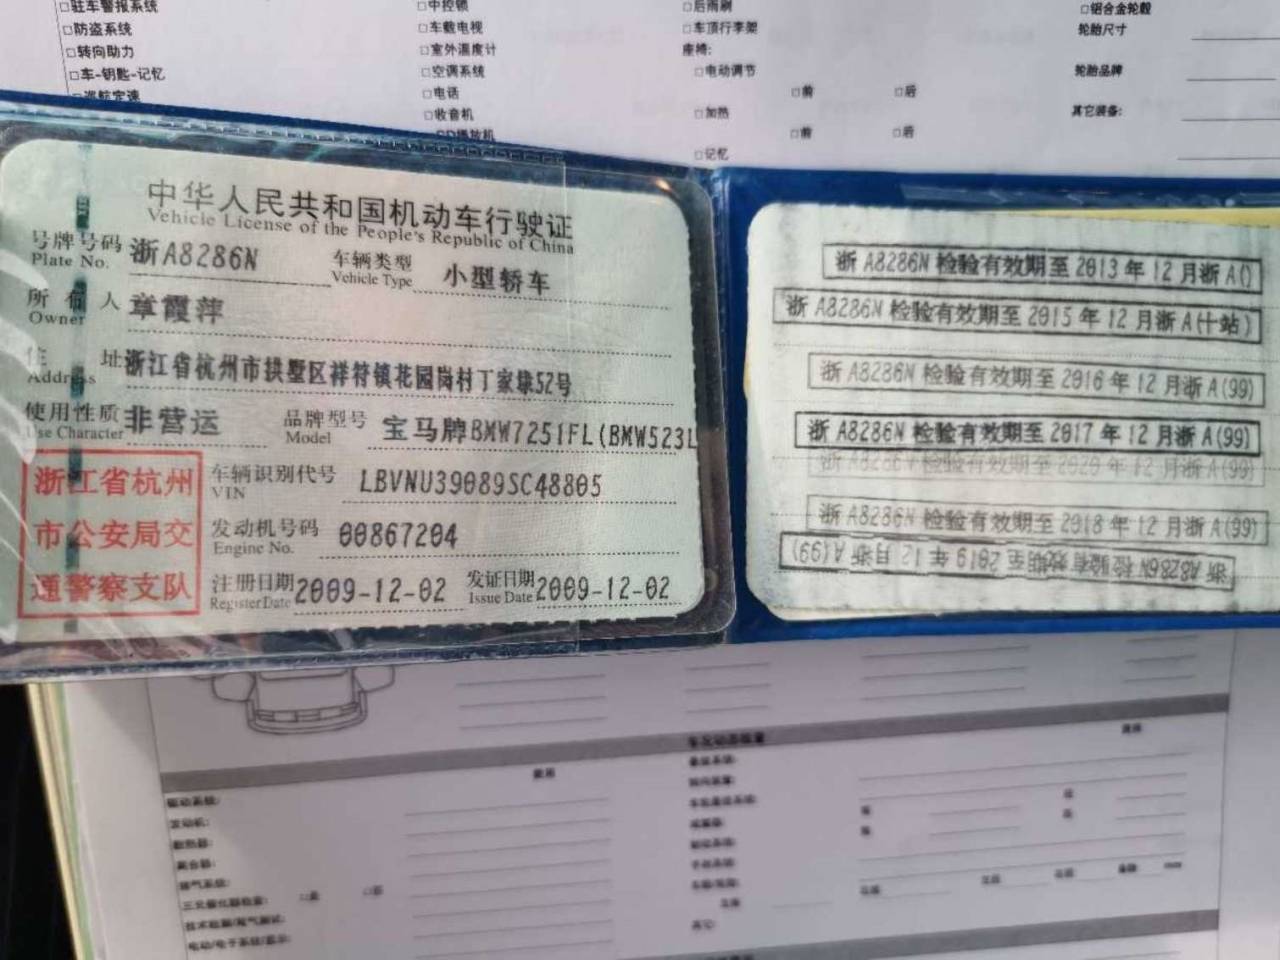 □驻车警报系统
□防盗系统
□转向助力
□车-钥匙-记忆
□巡航定速
□中控锁
□车载电视
□室外温度计
□空调系统
□电话
□收音机
□CD播放机
□后雨刷
□车顶行李架
座椅:
□电动调节
□前 □后
□加热
□前 □后
□记忆
□铝合金轮毂
轮胎尺寸
轮胎品牌
其它装备:
中华人民共和国机动车行驶证
Vehicle License of the People's Republic of China
号牌号码 浙A8286N 车辆类型 小型轿车
Plate No. Vehicle Type
所有人 章霞萍
Owner
住址 浙江省杭州市拱墅区祥符镇花园岗村丁家埭52号
Address
使用性质 非营运 品牌型号 宝马牌BMW7251FL(BMW523L
Use Character Model
浙江省杭州
市公安局交
通警察支队
车辆识别代号 LBVNU39089SC48805
VIN
发动机号码 00867204
Engine No.
注册日期 2009-12-02 发证日期 2009-12-02
Register Date Issue Date
浙A8286N检验有效期至2013年12月浙A()
浙A8286N检验有效期至2015年12月浙A(十站)
浙A8286N检验有效期至2016年12月浙A(99)
浙A8286N检验有效期至2017年12月浙A(99)
浙A8286N检验有效期至2020年12月浙A(99)
浙A8286N检验有效期至2018年12月浙A(99)
浙A8286N检验有效期至2019年12月浙A(99)
驱动系统:
发动机:
散热器:
离合器:
排气系统:
三元催化器检查:
技术检测/尾气测试:
电动/电子系统/显示: